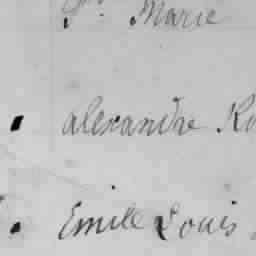 Marie
Alexandre
Emile Louis